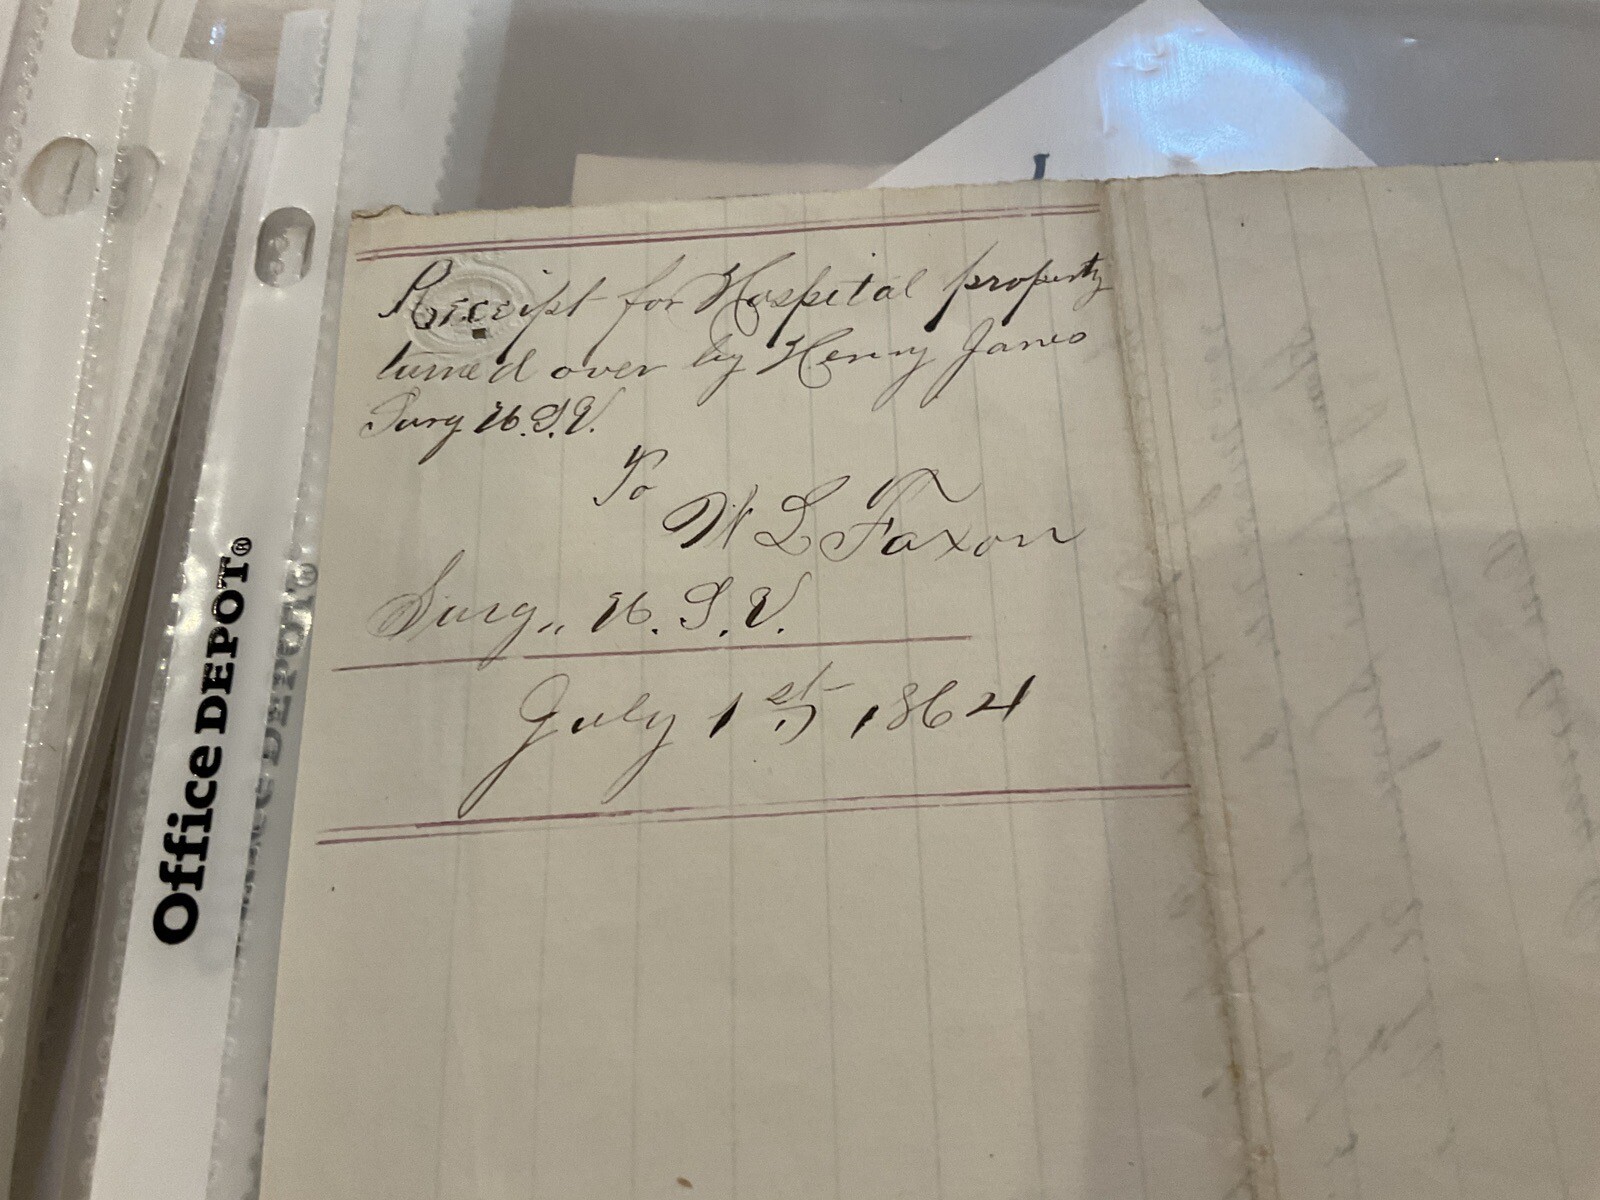 Receipt for Hospital property
turned over by Henry Janes
Surg U.S.V.
To
W L Faxon
Surg., U.S.V.
July 1st, 1864
Office DEPOT®